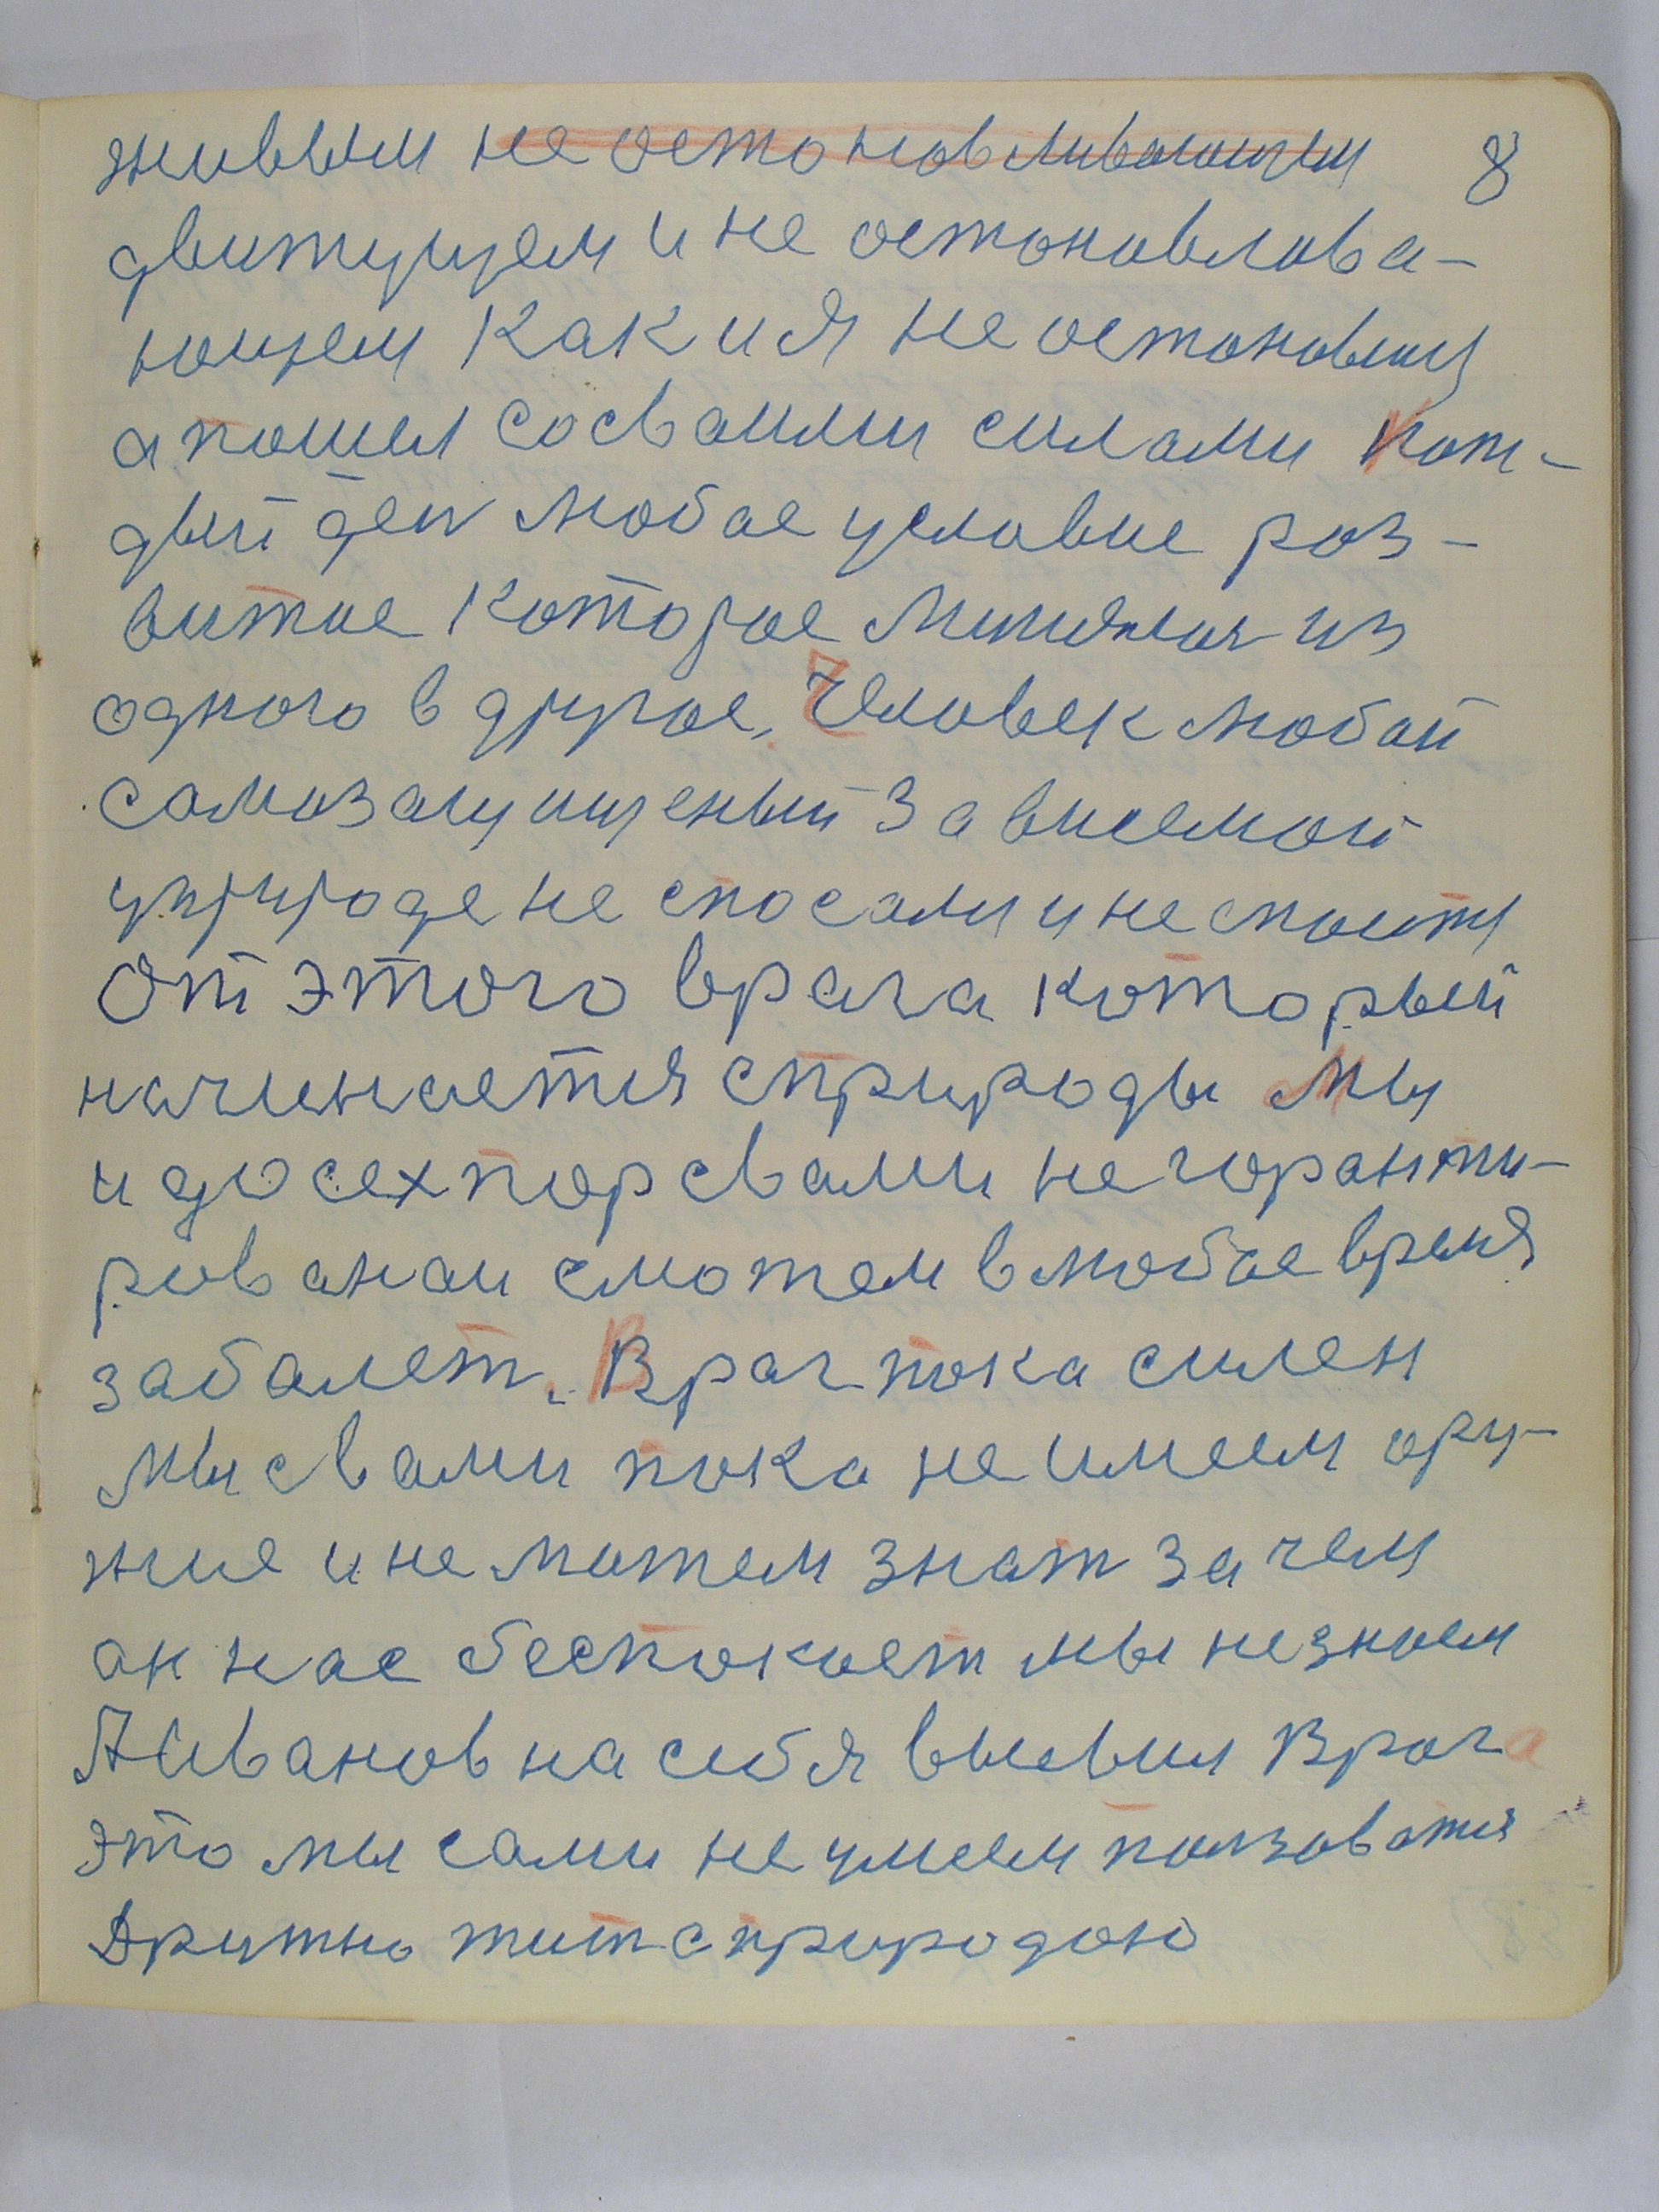 живым не остоновливающем 8
движущем и не остоновлова-
ющем как и я не остоновлиц
а пошел сосваими силами каж-
дый ден любое условие роз-
витие которое миняжая из
одного в другое, Человек любой
самозащищеный зависемой
уприроде не спосалц и не споитц
От этого врага который
начинается сприроды мы
и до сехпор свами не горанти-
рованаи сможем влюбое время
заболет. Враг пока силен
мы свами пока не имеем ору-
жие и не можем знат за чем
он нас беспокоет мы незнаем
А Иванов на себя выевил врага
это мы сами не умеем ползоватя
Дружно жит сприродою